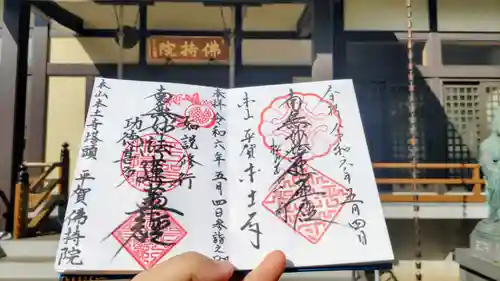 佛持院
令和六年五月四日
南無妙法蓮華経
本山 平賀 本土寺
奉拝 令和六年五月四日参詣之
如説修行
南無妙法蓮華経
本山本土寺塔頭 平賀 佛持院